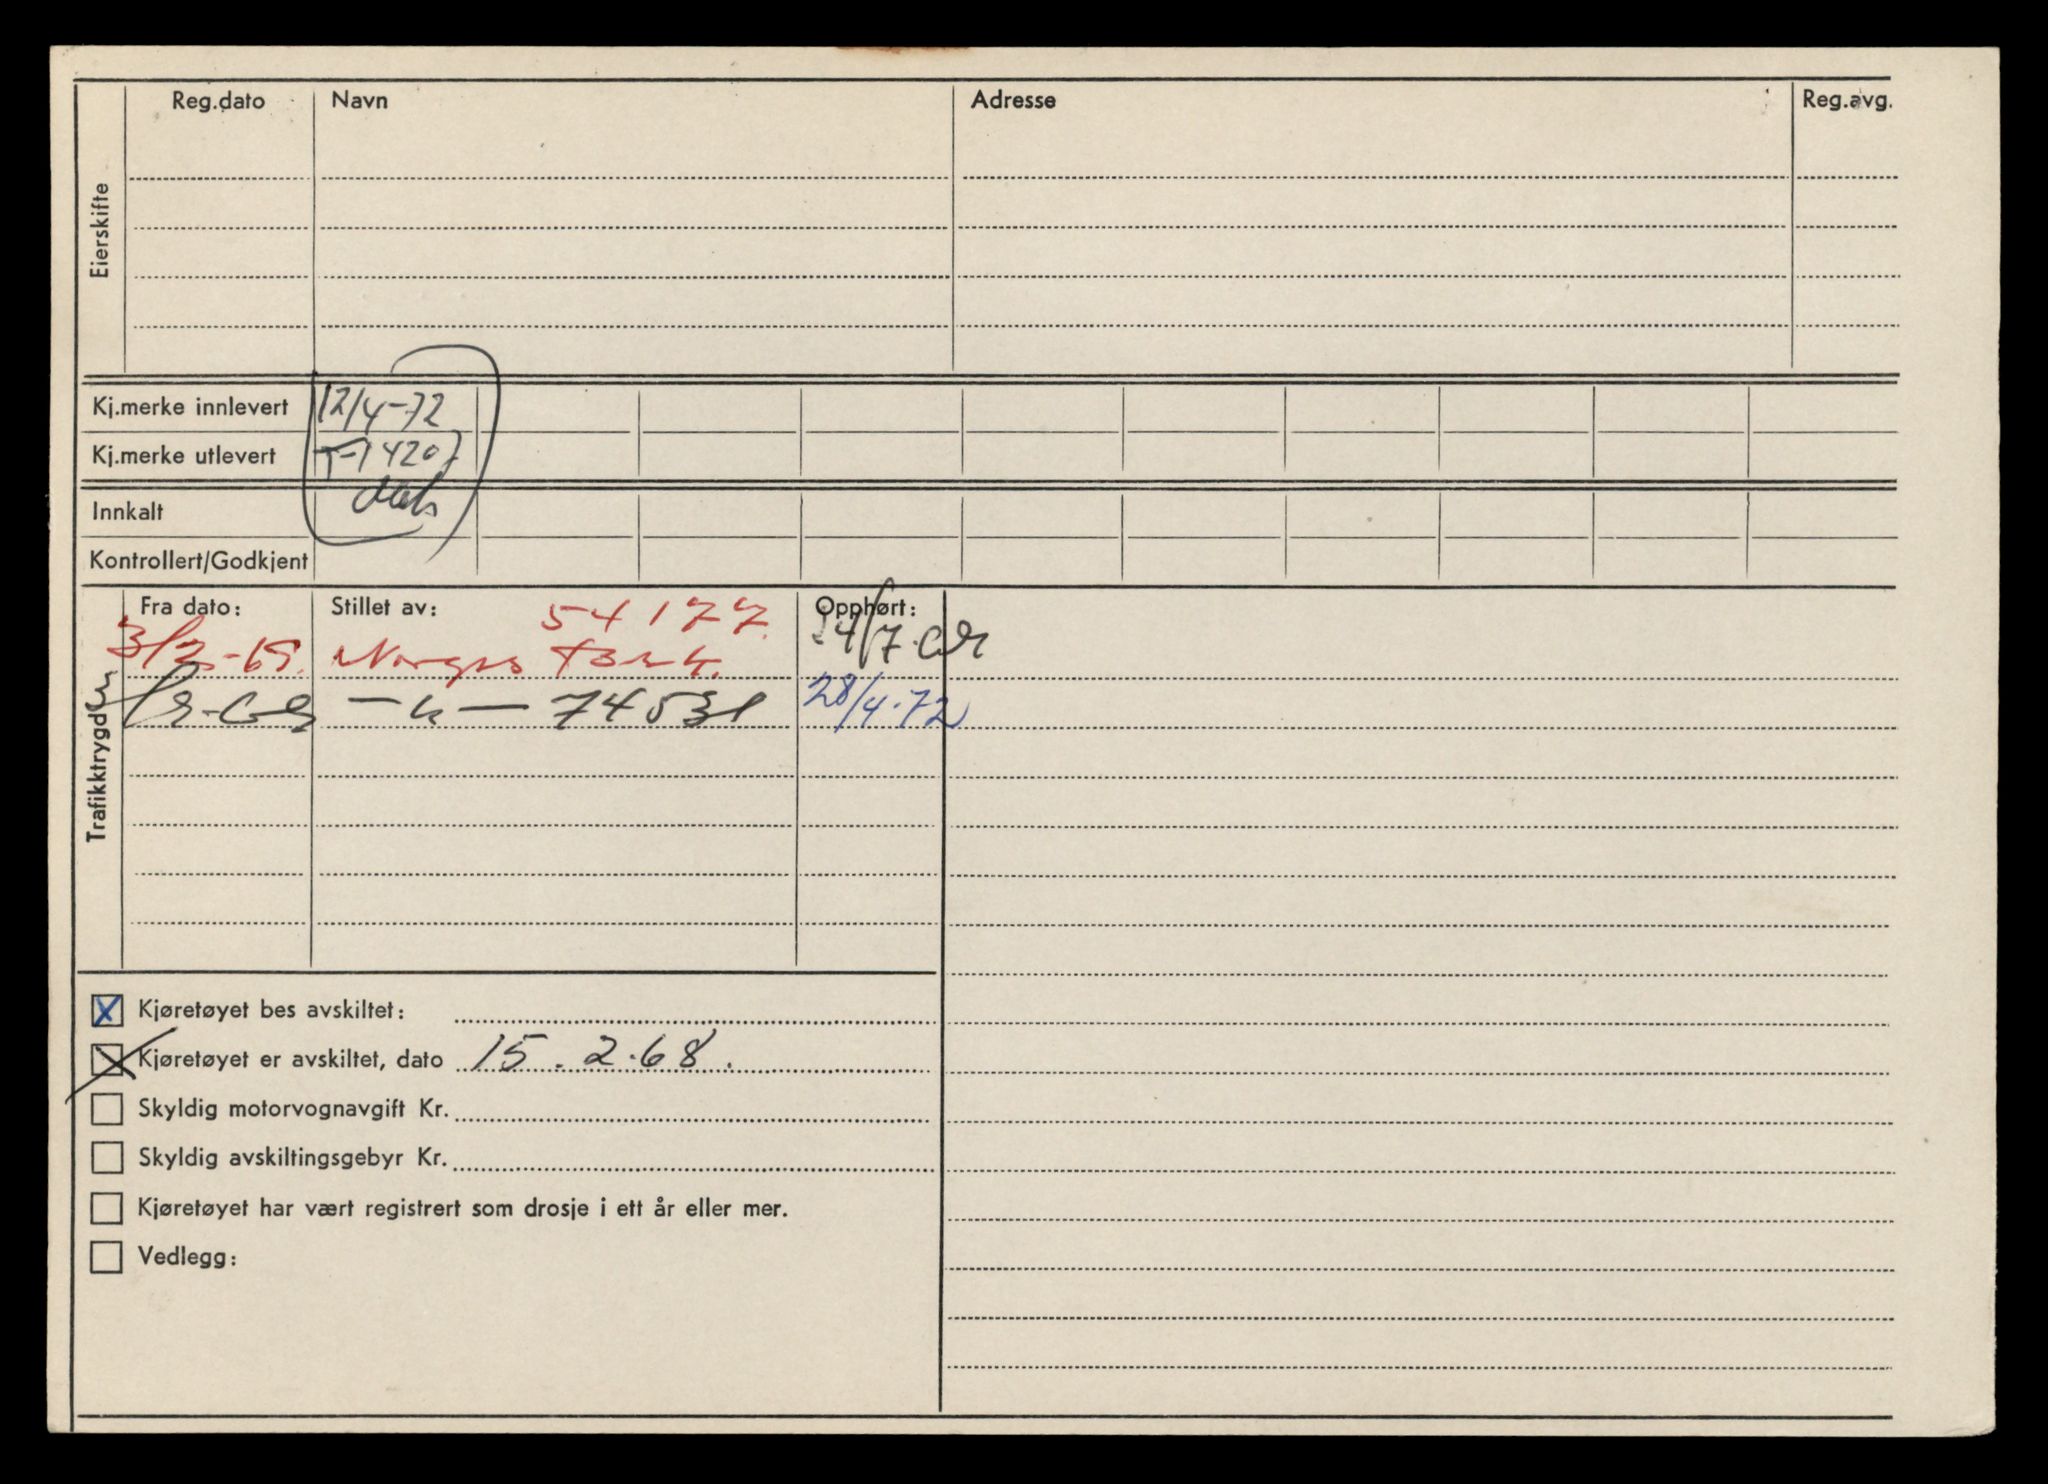 Reg.dato Navn Adresse Reg.avg.
Eierskifte
Kj.merke innlevert 12/4-72
Kj.merke utlevert T-14207
Innkalt
Kontrollert/Godkjent
Trafikktrygd
Fra dato: Stillet av: 54177 Opphørt:
Norges 24/7
— " — 74531 28/4-72
X Kjøretøyet bes avskiltet:
X Kjøretøyet er avskiltet, dato 15.2.68.
Skyldig motorvognavgift Kr.
Skyldig avskiltingsgebyr Kr.
Kjøretøyet har vært registrert som drosje i ett år eller mer.
Vedlegg: